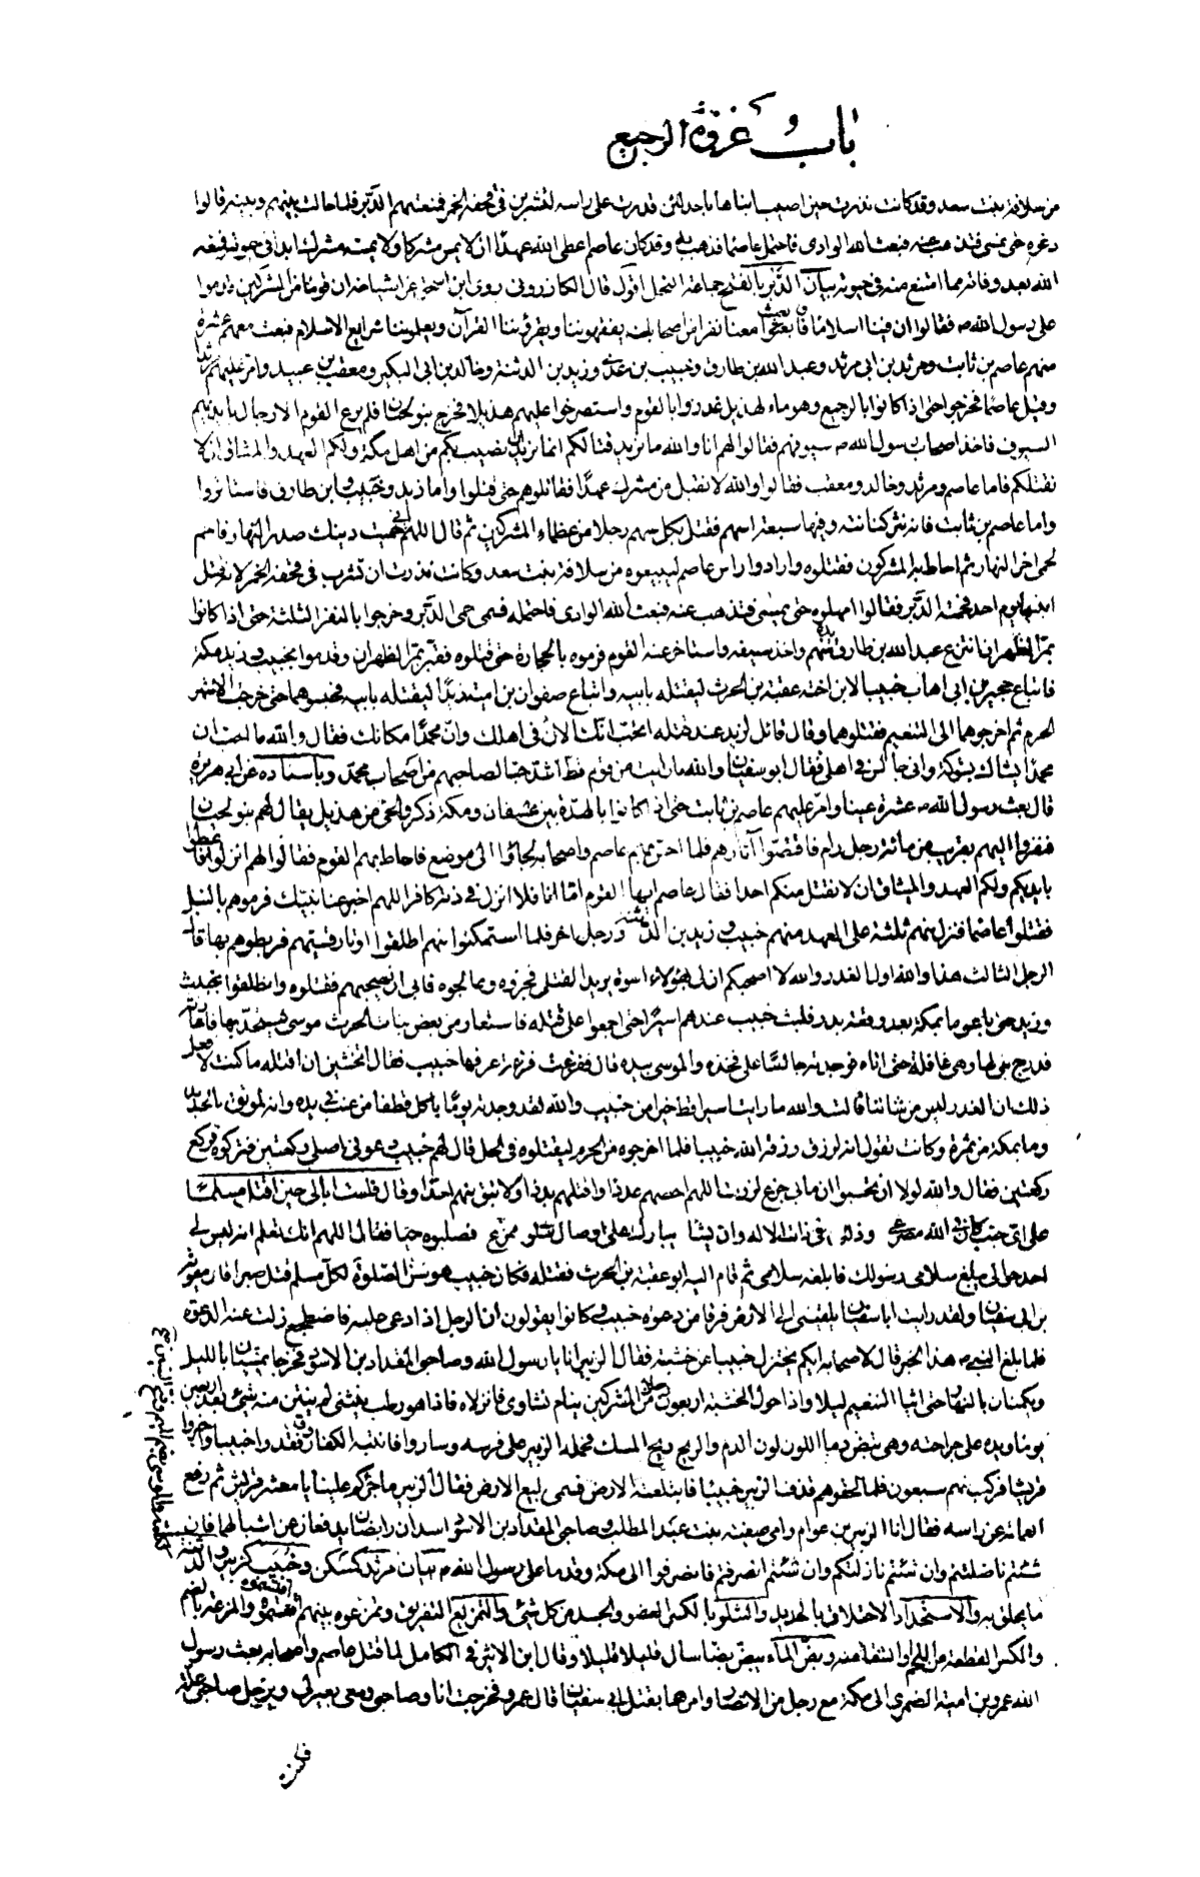 باب و غزوة الرجيع
من سلافة بنت سعد وقد كانت نذرت حين اصيب ابناها باحد لئن قدرت على راسه لتشربن في قحفه الخمر فمنعتهم الدبر فلما حالت بينهم وبينه قالوا
دعوه حتى يمسي فتذهب عنه فبعث الله الوادى فاحتمل عاصما فذهب به وقد كان عاصم اعطى الله عهدا ان لا يمس مشركا ولا يمسه مشرك ابدا في حيوته فمنعه
الله بعد وفاته مما امتنع منه في حيوته بيان الدبر بالفتح جماعة النحل اقول قال الكازروني روى ابن اسحق عن اشياخه ان قوما من المشركين قدموا
على رسول الله ص فقالوا ان فينا اسلاما فابعث معنا نفرا من اصحابك يفقهوننا ويقرؤننا القرآن ويعلموننا شرايع الاسلام فبعث معهم عشرة
منهم عاصم بن ثابت ومرثد بن ابى مرثد وعبد الله بن طارق وخبيب بن عدى وزيد بن الدثنة وخالد بن ابى البكير ومعقب بن عبيد وامر عليهم مرثدا
وقيل عاصما فخرجوا حتى اذا كانوا بالرجيع وهو ماء لهذيل غدروا بالقوم واستصرخوا عليهم هذيلا فخرج بنو لحيان فلم يرع القوم الا رجال بايديهم
السيوف فاخذ اصحاب رسول الله ص سيوفهم فقالوا لهم انا والله ما نريد قتالكم انما نريد ان نصيب بكم من اهل مكة ولكم العهد والميثاق ان لا
نقتلكم فاما عاصم ومرثد وخالد ومعقب فقالوا والله لا نقبل من مشرك عهدا فقاتلوهم حتى قتلوا واما زيد وخبيب وابن طارق فاستاسروا
واما عاصم بن ثابت فانه نثر كنانته وفيها سبعة اسهم فقتل بكل سهم رجلا من عظماء المشركين ثم قال اللهم انى حميت دينك صدر النهار فاحم
لحمى اخر النهار ثم احاط به المشركون فقتلوه وارادوا راس عاصم ليبيعوه من سلافة بنت سعد وكانت نذرت ان تشرب في قحفه الخمر لانه قتل
ابنيها يوم احد فحمته الدبر فقالوا امهلوه حتى يمسى فتذهب عنه فبعث الله الوادى فاحتمله فسمى حمى الدبر وخرجوا بالنفر الثلثة حتى اذا كانوا
بمر الظهران انتزع عبد الله بن طارق يده منهم واخذ سيفه واستاخر عنه القوم فرموه بالحجارة حتى قتلوه فقبره بمر الظهران وقدموا بخبيب وزيد مكة
فابتاع حجير بن ابى اهاب خبيبا لابن اخته عقبة بن الحرث ليقتله بابيه وابتاع صفوان بن امية زيدا ليقتله بابيه فحبسوهما حتى خرجت الاشهر
الحرم ثم اخرجوهما الى التنعيم فقتلوهما وقال قائل لزيد عند قتله اتحب انك الان في اهلك وان محمدا مكانك فقال والله ما احب ان
محمدا يشاك بشوكة وانى جالس في اهلى فقال ابو سفيان والله ما رايت من قوم قط اشد حبا لصاحبهم من اصحاب محمد وباسناده عن ابى هريرة
قال بعث رسول الله ص عشرة عينا وامر عليهم عاصم بن ثابت حتى اذا كانوا بالهدة بين عسفان ومكة ذكروا لحى من هذيل يقال لهم بنو لحيان
فنفروا اليهم بقريب من مائة رجل رام فاقتصوا آثارهم فلما احس بهم عاصم واصحابه لجاؤا الى موضع فاحاط بهم القوم فقالوا لهم انزلوا فاعطوا
بايديكم ولكم العهد والميثاق ان لا نقتل منكم احدا فقال عاصم ايها القوم اما انا فلا انزل في ذمة كافر اللهم اخبر عنا نبيك فرموهم بالنبل
فقتلوا عاصما فنزل منهم ثلثة على العهد منهم خبيب وزيد بن الدثنة ورجل اخر فلما استمكنوا منهم اطلقوا اوتار قسيهم فربطوهم بها قال
الرجل الثالث هذا والله اول الغدر والله لا اصحبكم ان لى بهؤلاء اسوة يريد القتلى فجروه وعالجوه فابى ان يصحبهم فقتلوه وانطلقوا بخبيب
وزيد حتى باعوهما بمكة بعد وقعة بدر فلبث خبيب عندهم اسيرا حتى اجمعوا على قتله فاستعار من بعض بنات الحرث موسى يستحد بها فاعارته
فدرج بنى لها وهى غافلة حتى اتاه فوجدته جالسا على فخذه والموسى بيده قال ففزعت فزعة عرفها خبيب فقال اتخشين ان اقتله ما كنت لافعل
ذلك ان الغدر ليس من شاننا قالت والله ما رايت اسيرا قط خيرا من خبيب والله لقد وجدته يوما ياكل قطفا من عنب في يده وانه لموثق بالحديد
وما بمكة من ثمرة وكانت تقول انه لرزق رزقه الله خبيبا فلما اخرجوه من الحرم ليقتلوه في الحل قال لهم خبيب دعونى اصلى ركعتين فتركوه فركع
ركعتين فقال والله لولا ان تحسبوا ان ما بى جزع لزدت اللهم احصهم عددا واقتلهم بددا ولا تبق منهم احدا وقال فلست ابالى حين اقتل مسلما
على اى جنب كان في الله مصرعى وذلك في ذات الاله وان يشا يبارك على اوصال شلو ممزع فصلبوه حيا فقال اللهم انك تعلم انه ليس لى
احد حوالى مبلغ سلامى رسولك فابلغه سلامى ثم قام اليه ابو عقبة بن الحرث فقتله فكان خبيب هو سن الصلوة لكل مسلم قتل صبرا قال معوية
بن ابى سفيان ولقد رايت ابا سفيان يلقينى الى الارض فرقا من دعوة خبيب وكانوا يقولون ان الرجل اذا دعى عليه فاضطجع زلت عنه الدعوة
فلما بلغ النبى ص هذا الخبر قال لاصحابه ايكم يختزل خبيبا عن خشبته فقال الزبير انا يا رسول الله وصاحبى المقداد بن الاسود فخرجا يمشيان بالليل
ويكمنان بالنهار حتى اتيا التنعيم ليلا واذا حول الخشبة اربعون رجلا من المشركين نيام نشاوى فانزلاه فاذا هو رطب ينثنى لم ينتن منه شيء بعد اربعين
يوما ويده على جراحته وهى تبض دما اللون لون الدم والريح ريح المسك فحمله الزبير على فرسه وسارا فانتبه الكفار وقد فقدوا خبيبا واخبروا
قريشا فركب منهم سبعون فلما لحقوهم قذف الزبير خبيبا فابتلعته الارض فسمى بليع الارض فقال الزبير ما جرأكم علينا يا معشر قريش ثم رفع
العمامة عن راسه فقال انا الزبير بن عوام وامى صفية بنت عبد المطلب وصاحبى المقداد بن الاسود اسدان رابضان يدفعان عن اشبالهما فان
شئتم ناضلتكم وان شئتم نازلتكم وان شئتم انصرفتم فانصرفوا الى مكة وقدما على رسول الله ص بيان مرثد كمسكن وخبيب كزبير والدثنة
ما يحلق به والاستحداد الاحتلاق بالحديد والشلو بالكسر العضو والجسد من كل شيء والتمزيع التفريق وتمزعوه بينهم اقتسموه والمزعة بالضم
والكسر القطعة من اللحم والنتفة منه وبض الماء يبض بضا سال قليلا قليلا وقال ابن الاثير في الكامل لما قتل عاصم واصحابه بعث رسول
الله عمرو بن امية الضمرى الى مكة مع رجل من الانصار وامرهما بقتل ابى سفيان قال عمرو فخرجت انا وصاحبى ومعى بعير لى وبرجل صاحبى علة
فكنت